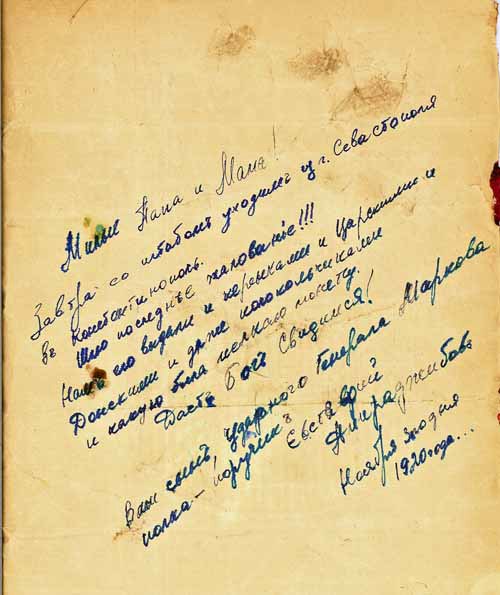 Милые Папа и Мама!
Завтра со штабомъ уходимъ из г. Севастополя
въ Константинополь.
Шлю последнее жалованье!!!
Намъ его выдали и керенками и царскими и
Донскими и даже колокольчиками
и какую была мелкаю монету.
Дастъ Богъ Свидимся!
Ваш сынъ, ударного Генерала Маркова
полка - поручик Евстафий
Ноября 3го дня
1920 года...